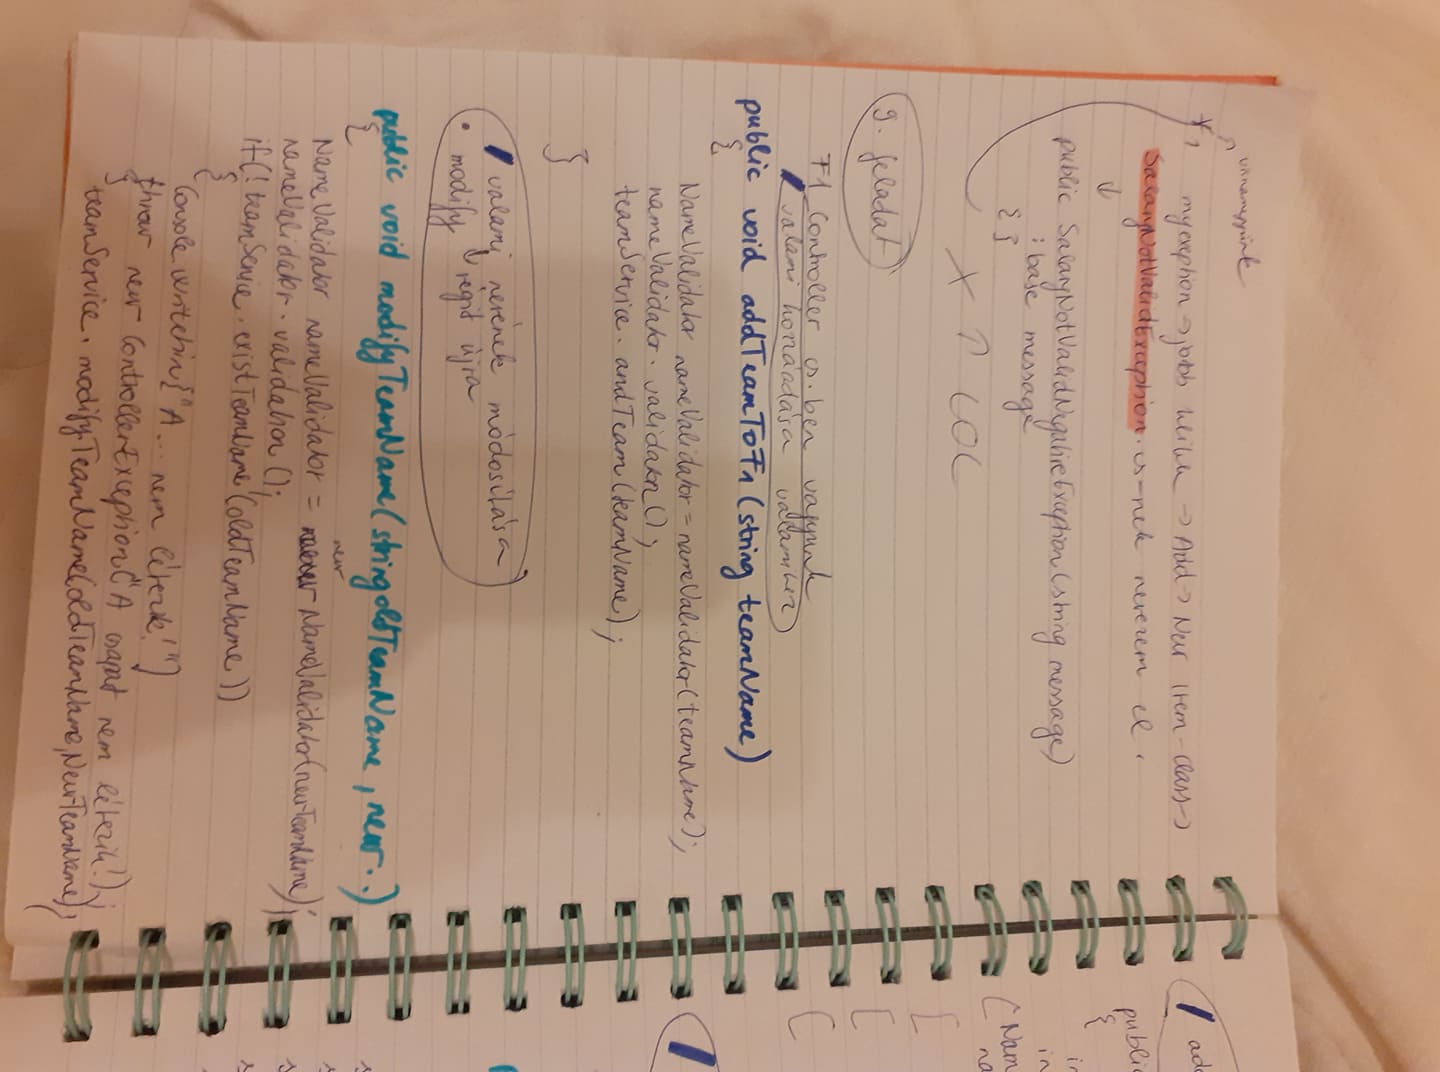 myexception → jobb → Add → New item - class →
SalaryNotValidException cs-nek nevezem el.
↓
public SalaryNotValidNegativeException(string message)
: base message
{ }
X ↑ LOL
9. feladat
F1 Controller cs. ben vagyunk
valami hozzáadása valamihez
public void addTeamToF1(string teamName)
{
NameValidator nameValidator = nameValidator(teamName);
nameValidator.validation();
teamService.andTeam(teamName);
}
valami nevének módosítása
• modify régit újra
public void modifyTeamName(string oldTeamName, new..)
{
new
NameValidator nameValidator = NameValidator(newTeamName);
nameValidator.validation();
if(!teamService.existTeamName(oldTeamName))
{
Console.writeline{"A... nem létezik!")
throw new ControllerException("A csapat nem létezik!");
}
teamService.modifyTeamName(oldTeamName, NewTeamName);
add
public
{
in
in
(Nam
na
[
[
[